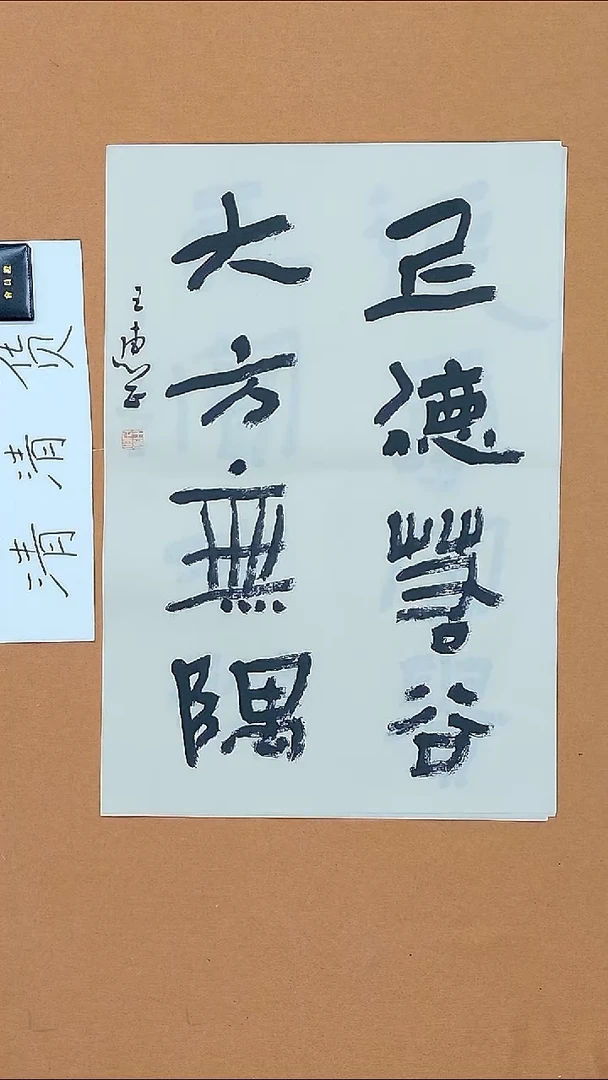 上德若谷
大方無隅
清
清